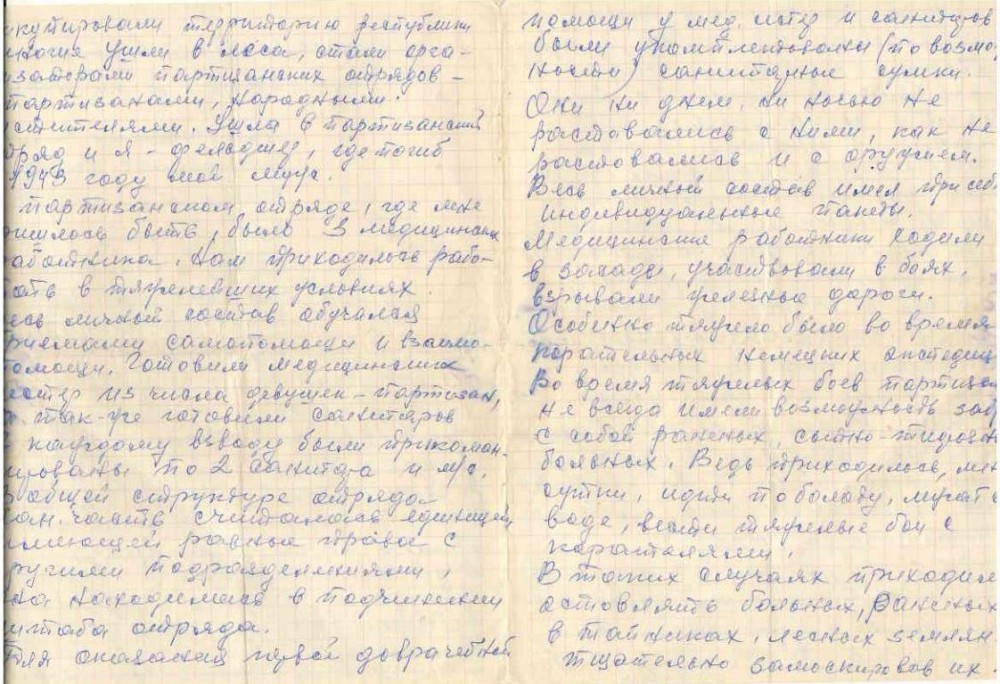 купировали территорию республики
многие ушли в леса, стали орга-
изаторами партизанских отрядов -
партизанами, народными
стителями. Ушла в партизанский
тряд и я - фельдшер, где погиб
1943 году мой муж.
партизанском отряде, где мне
ришлось быть, было 3 медицинских
аботника. Нам приходилось рабо-
тать в тяжелейших условиях.
есь личный состав обучался
риемами самопомощи и взаимо-
омощи. Готовили медицинских
естер из числа девушек - партизан,
так-же готовили санитаров
каждому взводу были прикоман-
ированы по 2 санитара и м/с.
В общей структуре отряда
сан. часть считалась единицей
имеющей равные права с
ругими подразделениями,
на находилась в подчинении
штаба отряда.
Для оказания первой доврачебной
помощи у мед. сестер и санитаров
были укомплектованы (по возмо
ности) санитарные сумки.
Они ни днем, ни ночью не
расставались с ними, как не
расставались и с оружием.
Весь личный состав имел при себ
индивидуальные пакеты.
Медицинские работники ходили
в засады, участвовали в боях,
взрывали железные дороги.
Особенно тяжело было во время
карательных немецких экспедиц
Во время тяжелых боев партизан
не всегда имели возможность заб
с собой раненых, сыпно тифозн
больных. Ведь приходилось,
сутки, идти по болоту,
воде, вести тяжелые бои с
карателями.
В таких случаях приходил
оставлять больных, раненых
в тайниках, лесных землян
тщательно замаскировав их.